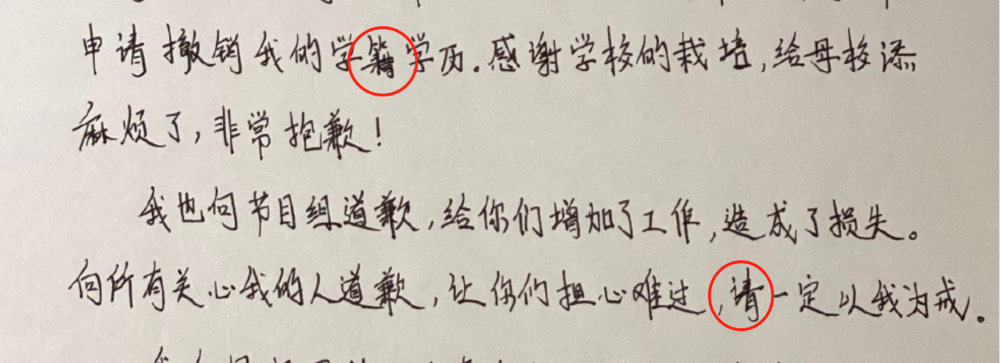 申请撤销我的学籍学历.感谢学校的栽培,给母校添
麻烦了,非常抱歉!
我也向节目组道歉,给你们增加了工作,造成了损失。
向所有关心我的人道歉,让你们担心难过,请一定以我为戒。